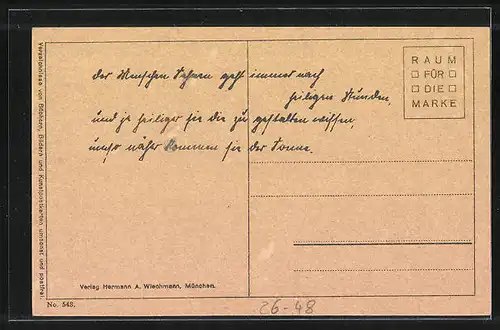 RAUM
FÜR
DIE
MARKE
der Menschen Sehnen geht immer nach
heiligen Stunden,
und je heiliger sie die zu gestalten wissen,
umso näher kommen sie der Sonne.
Verzeichnisse von Büchern, Bildern und Kunstpostkarten umsonst und postfrei.
Verlag Hermann A. Wiechmann, München.
No. 548.
26-48